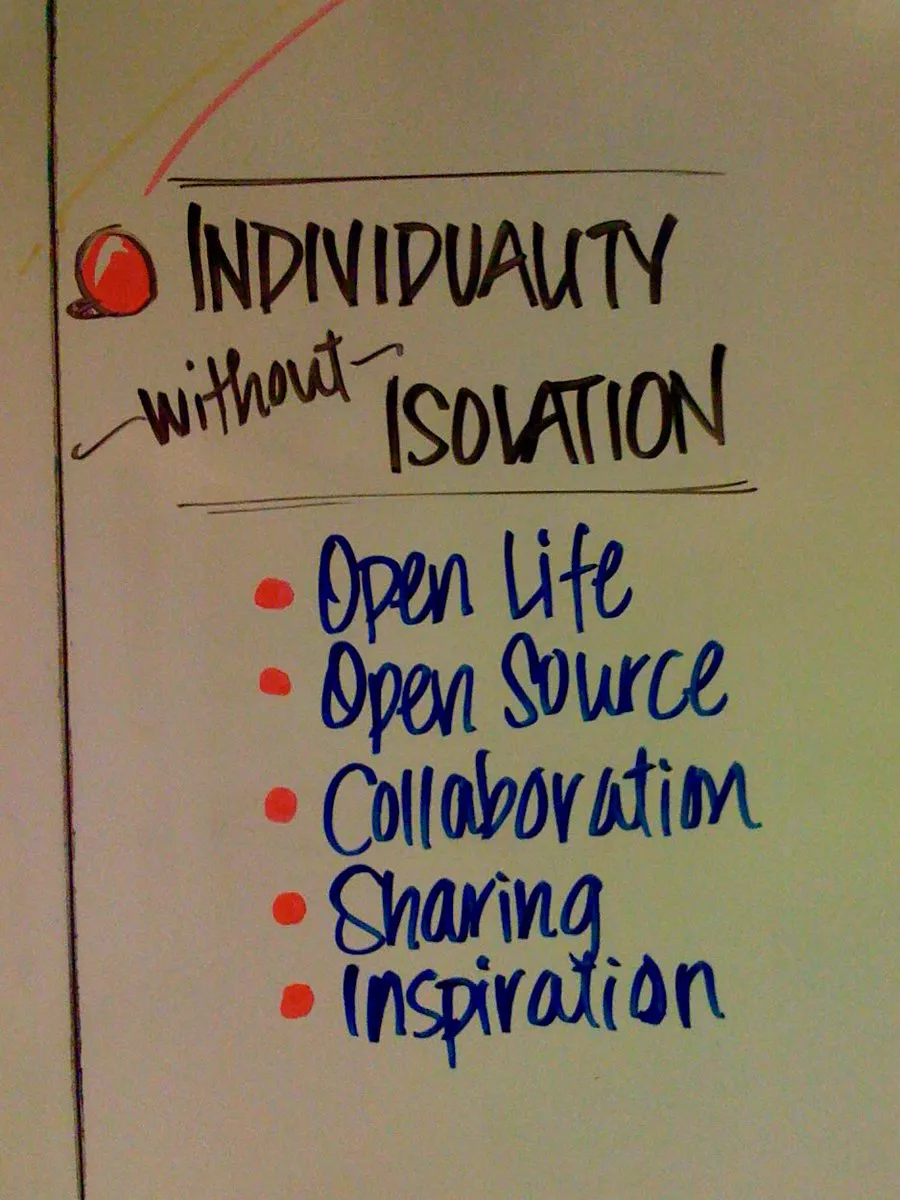 INDIVIDUALITY
without
ISOLATION
Open Life
Open Source
Collaboration
Sharing
Inspiration